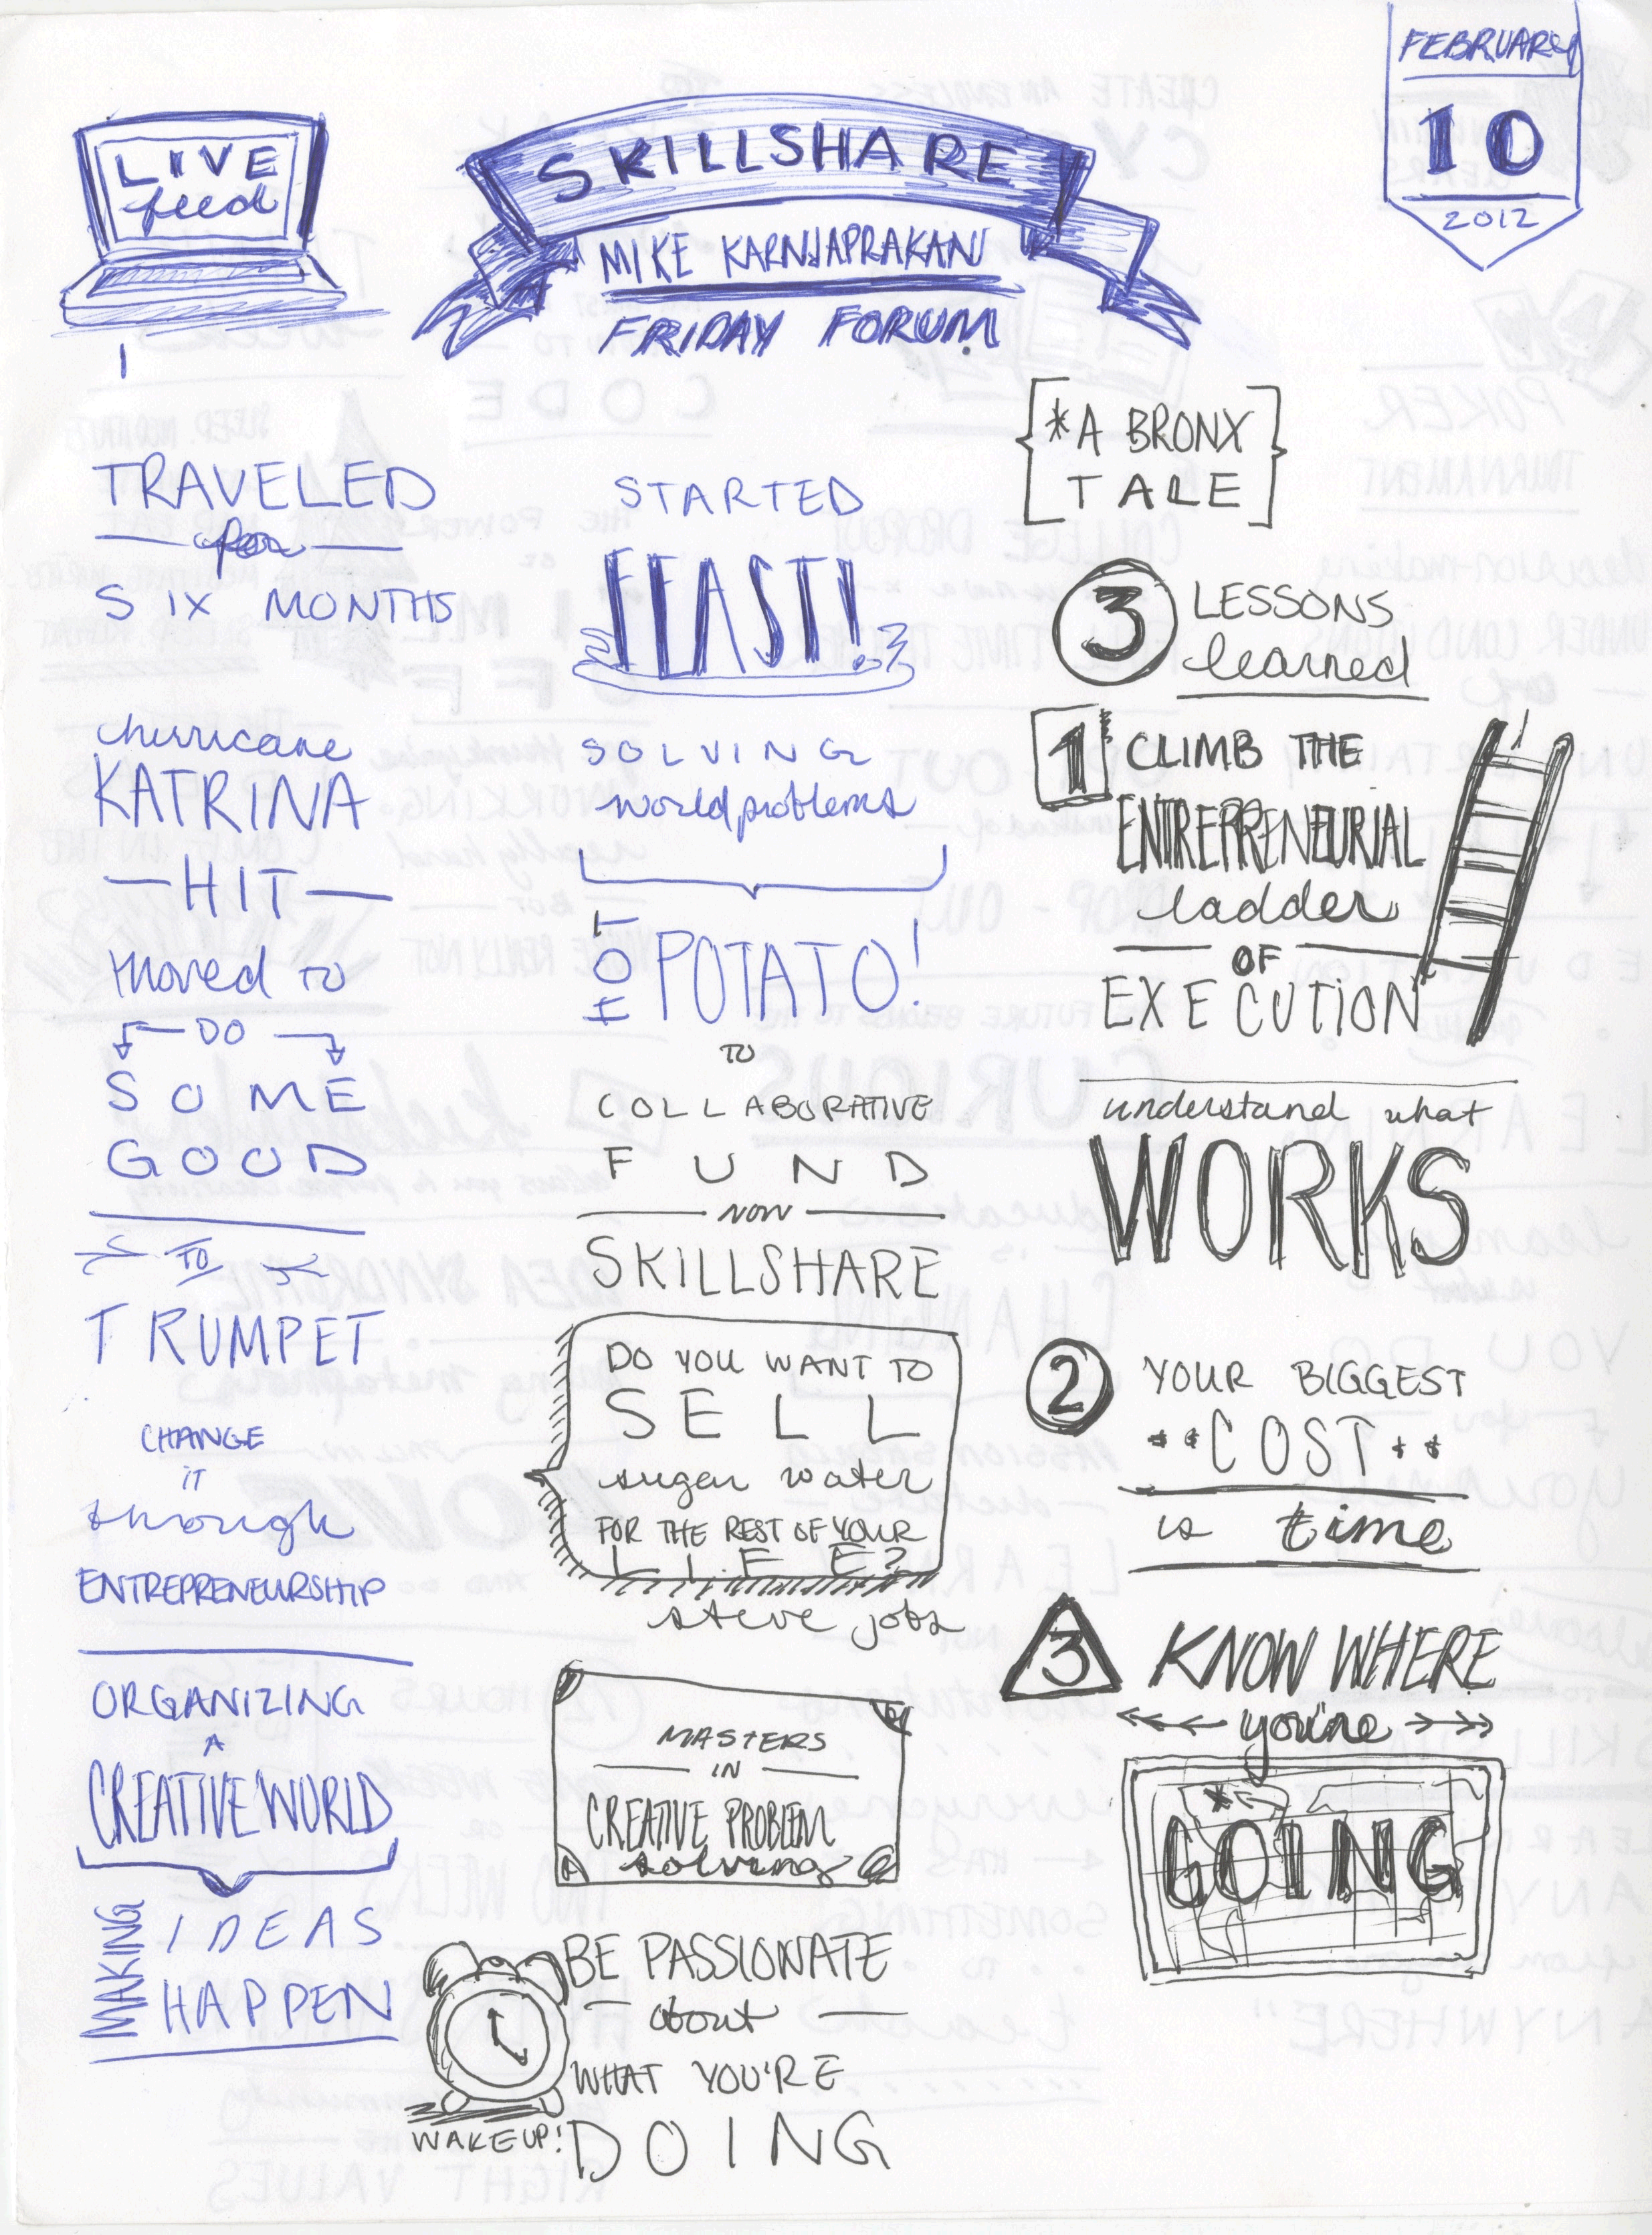 LIVE
feed
SKILLSHARE
MIKE KARNJAPRAKAN
FRIDAY FORUM
FEBRUARY
10
2012
TRAVELED
for
SIX MONTHS
hurricane
KATRINA
HIT
moved TO
DO
SOME
GOOD
TO
TRUMPET
CHANGE
IT
through
ENTREPRENEURSHIP
ORGANIZING
A
CREATIVE WORLD
MAKING
IDEAS
HAPPEN
STARTED
FEAST!
SOLVING
world problems
HOT POTATO!
TO
COLLABORATIVE
FUND
NOW
SKILLSHARE
DO YOU WANT TO
SELL
sugar water
FOR THE REST OF YOUR
LIFE?
steve jobs
MASTERS
IN
CREATIVE PROBLEM
solving
WAKE UP!
BE PASSIONATE
about
WHAT YOU'RE
DOING
*A BRONX
TALE
3 LESSONS
learned
1 CLIMB THE
ENTREPRENEURIAL
ladder
OF
EXECUTION
understand what
WORKS
2 YOUR BIGGEST
COST
is time
3 KNOW WHERE
you're
GOING